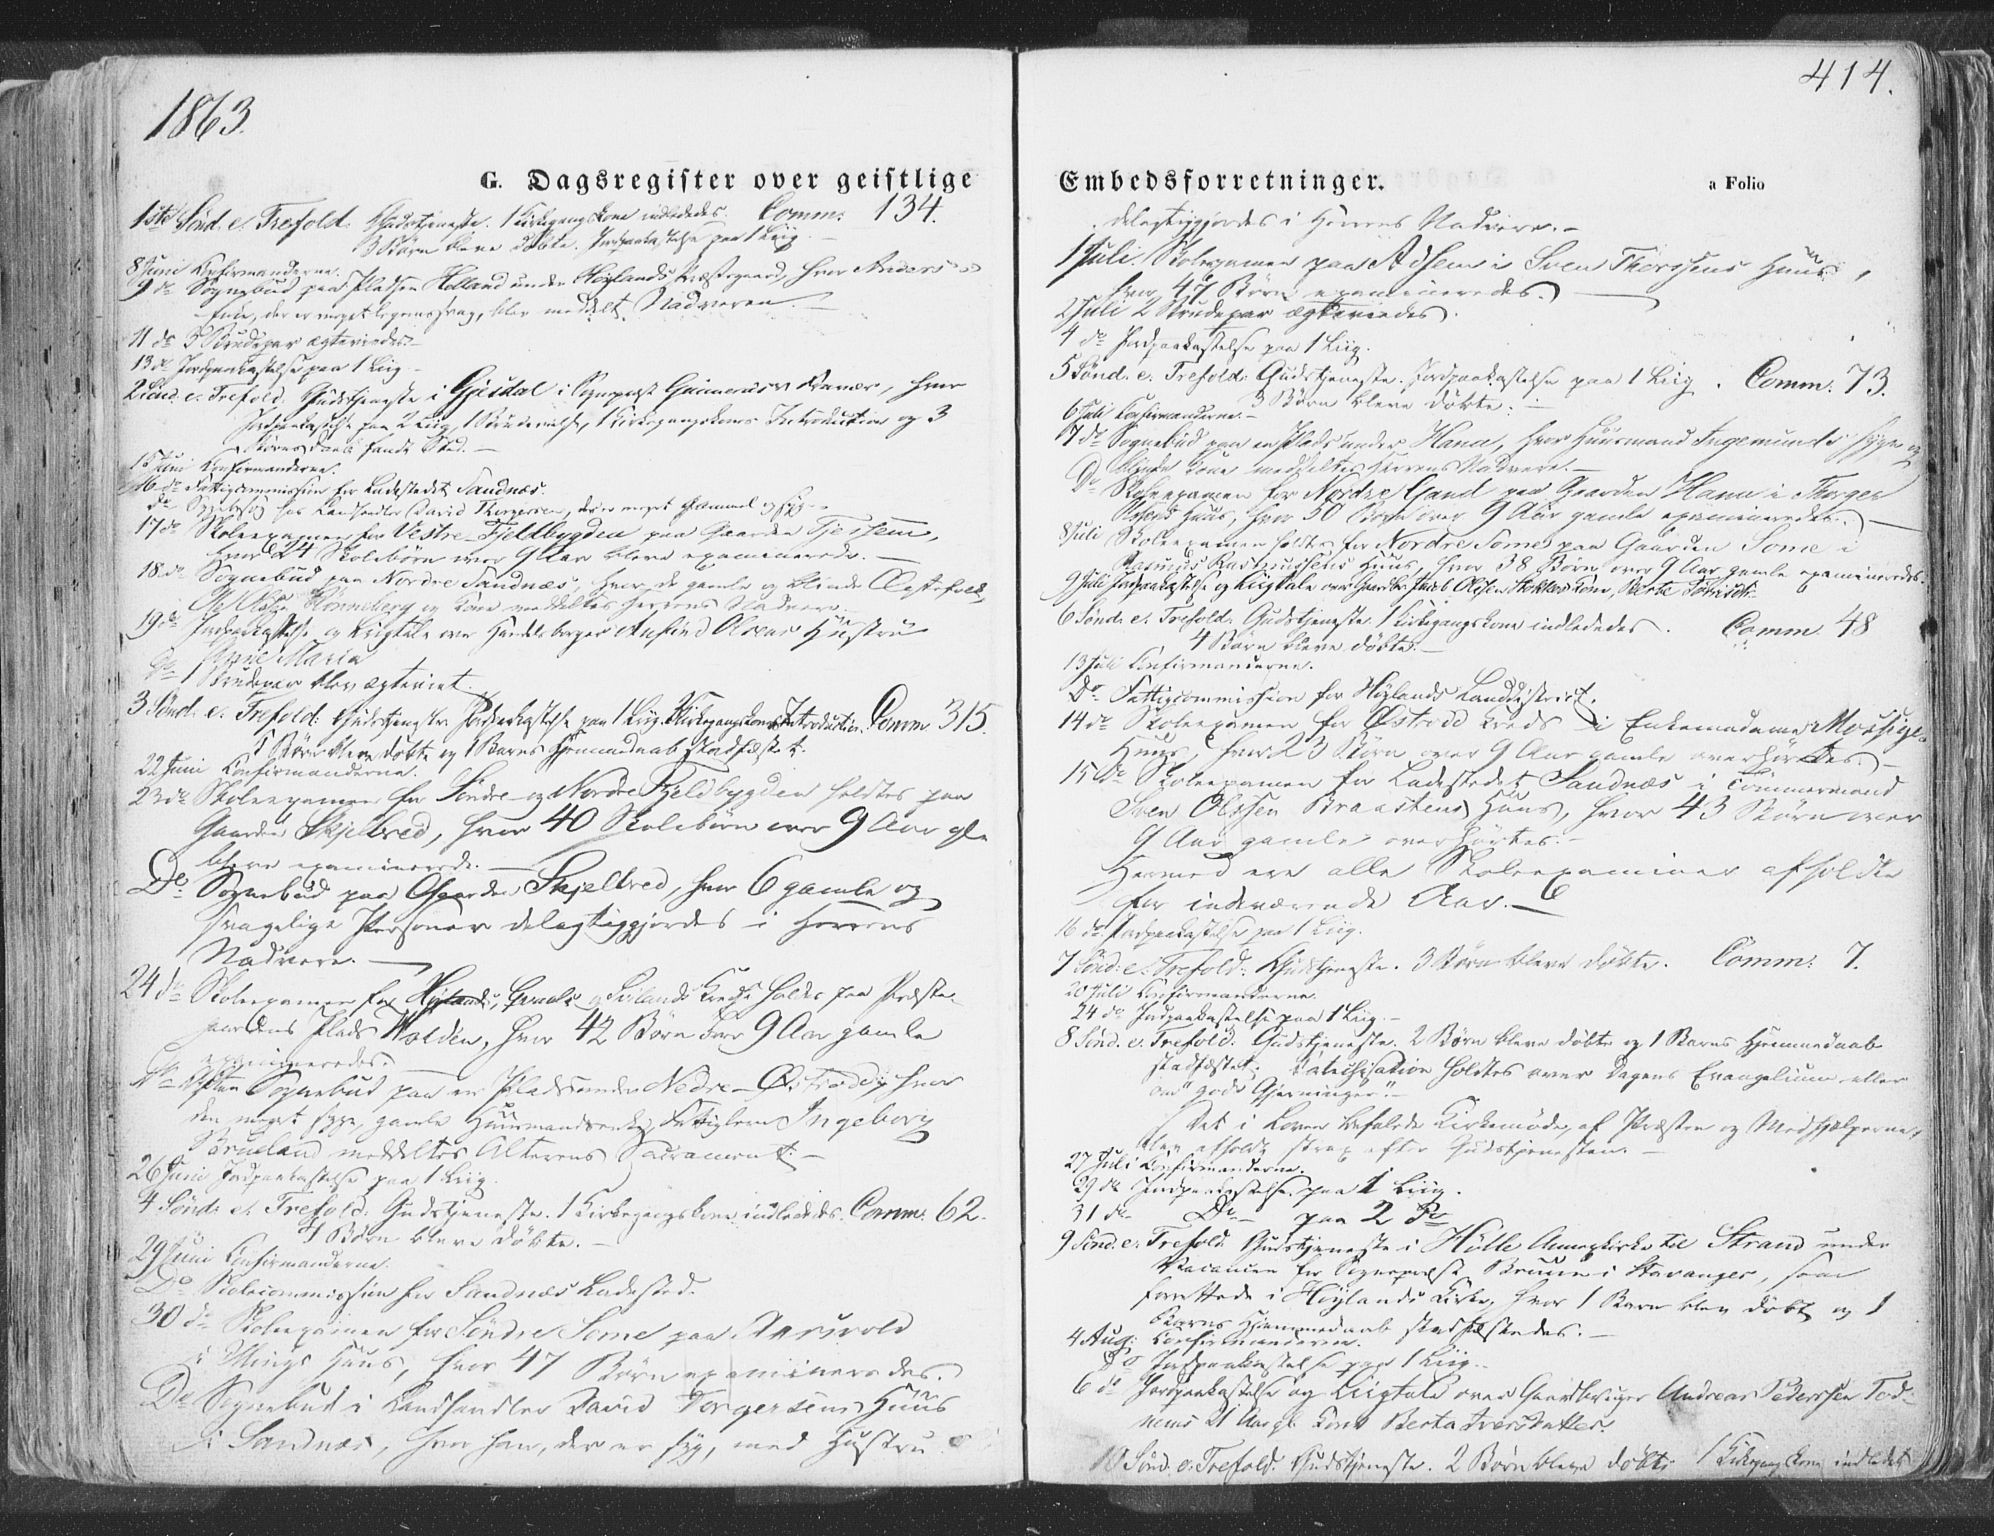 1863.
G. Dagsregister over geistlige
1ste Sönd. e. Trefold. Gudstjeneste. 1 Kirkegangskone indlededes. Comm: 134.
3 Børn bleve døbte. Jordpaakastelse paa 1 Liig.
8 Juni Confirmanderne.
9 do Sognebud paa Pladsen Holland under Høylands Præstegaard, hvor Anders
der er meget svag, blev meddelt Nadveren.
11 do 3 Brudepar ægteviedes.
13 do Jordpaakastelse paa 1 Liig
2 Sönd. e. Trefold. Gudstjeneste i Gjesdal i Sognepræst Gunnerus's Kranær, hvor
Jordpaakastelse paa 2 Liig, 1 Brudevielse, 1 Kirkegangskones Introduction og 3
Børns Daab fandt Sted.
15 Juni Confirmanderne.
16 do Fattigcommission for Ladestedet Sandnæs.
do Sygebesøg hos Landhandler David Thorgersen, der er meget gammel og syg.
17 do Skoleexamen for Vestre Fjeldbygden paa Gaarden Tjessem,
hvor 24 Skolebørn over 9 Aar bleve examinerede.
18 do Sognebud paa Nordre Sandnæs, hvor de gamle og blinde Ægtefolk,
Rønneberg og Kone meddeltes Herrens Nadvere.
19 do Jordpaakastelse og Liigtale over Handelsborger Ansfind Olsens Hustru
Anne Maria
do 1 Brudepar blev ægteviet.
3 Sönd. e. Trefold: Gudstjeneste. Jordpaakastelse paa 1 Liig. 1 Kirkegangskones Introduction. Comm. 315.
Børn bleve døbte og 1 Barns Hjemmedaab stadfæstet.
22 Juni Confirmanderne.
23 do Skoleexamen for Søndre og Nordre Fjeldbygden holdtes paa
Gaarden Skjelbred, hvor 40 Skolebørn over 9 Aar gle
bleve examinerede.
Do Sognebud paa Gaarden Skjelbred, hvor 6 gamle og
svagelige Personer delagtiggjordes i Herrens
Nadvere.
24 do Skoleexamen for Høylands, og Kreds holdt paa Præste-
gaardens Plads Volden, hvor 42 Børn over 9 Aar gamle
examineredes.
Do Aften Sognebud paa en Plads under Nedre-Østraad, hvor
den meget syge, gamle Huusmandsenke, Fattiglem Ingeborg
Brueland meddeltes Alterens Sacrament.
26 Juni Jordpaakastelse paa 1 Liig.
4 Sönd. e. Trefold: Gudstjeneste. 1 Kirkegangskone indlededes. Comm. 62.
4 Børn bleve døbte.
29 Juni Confirmanderne.
Do Skolecommission for Sandnæs Ladested.
30 do Skoleexamen for Søndre Some paa Aarsvold
i Mings Huus, hvor 47 Børn examineredes.
Do Sognebud i Landhandler David Torgersens Huus
i Sandnæs, hvor han, der er syg, med Hustru
414.
Embedsforretninger.
a Folio
delagtiggjordes i Herrens Nadvere.
1 Juli. Skoleexamen paa Adsem i Sven Thorssens Huus,
hvor 47 Børn examineredes.
2 Juli 2 Brudepar ægteviedes.
4 do Jordpaakastelse paa 1 Liig.
5 Sönd. e. Trefold: Gudstjeneste. Jordpaakastelse paa 1 Liig. Comm. 73.
3 Børn bleve døbte.
6 Juli Confirmanderne.
7 do Sognebud paa en Plads under Hana, hvor Huusmand Ingemunds syge og
blinde Kone meddeltes Herrens Nadvere.
Do Skoleexamen for Nordre Gand paa Gaarden Hana i Thorger
Huus, hvor 50 Børn over 9 Aar gamle examineredes.
8 Juli Skoleexamen holdtes for Nordre Some paa Gaarden Some i
Rasmus Rasmussens Huus, hvor 38 Børn over 9 Aar gamle examineredes.
9 Juli Jordpaakastelse og Liigtale over Gaardbr. Jacob Olsen Stokkes Kone, Berte
6 Sönd. e. Trefold: Gudstjeneste. 1 Kirkegangskone indlededes. Comm. 48
4 Børn bleve døbte.
13 Juli Confirmanderne.
Do Fattigcommission for Høylands Landdistrict.
14 do Skoleexamen for Østraad Kreds i Enkemadame Mossiges
Huus, hvor 23 Børn over 9 Aar gamle overhørtes.
15 do Skoleexamen for Ladestedet Sandnæs i Tömmermand
Sven Olssen Braastens Huus, hvor 43 Børn over
9 Aar gamle overhørtes.
Hermed ere alle Skoleexaminer afholdte
for indeværende Aar.
16 do. Jordpaakastelse paa 1 Liig.
7 Sönd: e. Trefold: Gudstjeneste. 3 Børn bleve døbte. Comm: 7.
20 Juli Confirmanderne.
24 do Jordpaakastelse paa 1 Liig.
8 Sönd. e. Trefold. Gudstjeneste. 2 Børn bleve døbte og 1 Barns Hjemmedaab
stadfæstet. Catechisation holdtes over Dagens Evangelium eller
om "gode Gjerninger".
Det i Loven befalede Kirkemøde, af Præsten og Medhjælperne,
blev afholdt strax efter Gudstjenesten.
27 Juli Confirmanderne.
29 do Jordpaakastelse paa 1 Liig.
31 do Do paa 2 Do
9 Sönd. e. Trefold. Gudstjeneste i Hölle Annexkirke til Strand under
Vacancen for Sognepræst Bruun i Stavanger, som
forrettede i Høylands Kirke, hvor 1 Barn blev døbt og 1
Barns Hjemmedaab stadfæstedes.
4 Aug: Confirmanderne.
Do Jordpaakastelse paa 1 Liig.
6 do Jordpaakastelse og Liigtale over Gaardbruger Andreas Pederssen Tod-
nems 21 Aar gl. Kone Berta Iversdatter.
10 Sönd. e. Trefold. Gudstjeneste. 2 Børn bleve døbte 1 Kirkegangskone indledet